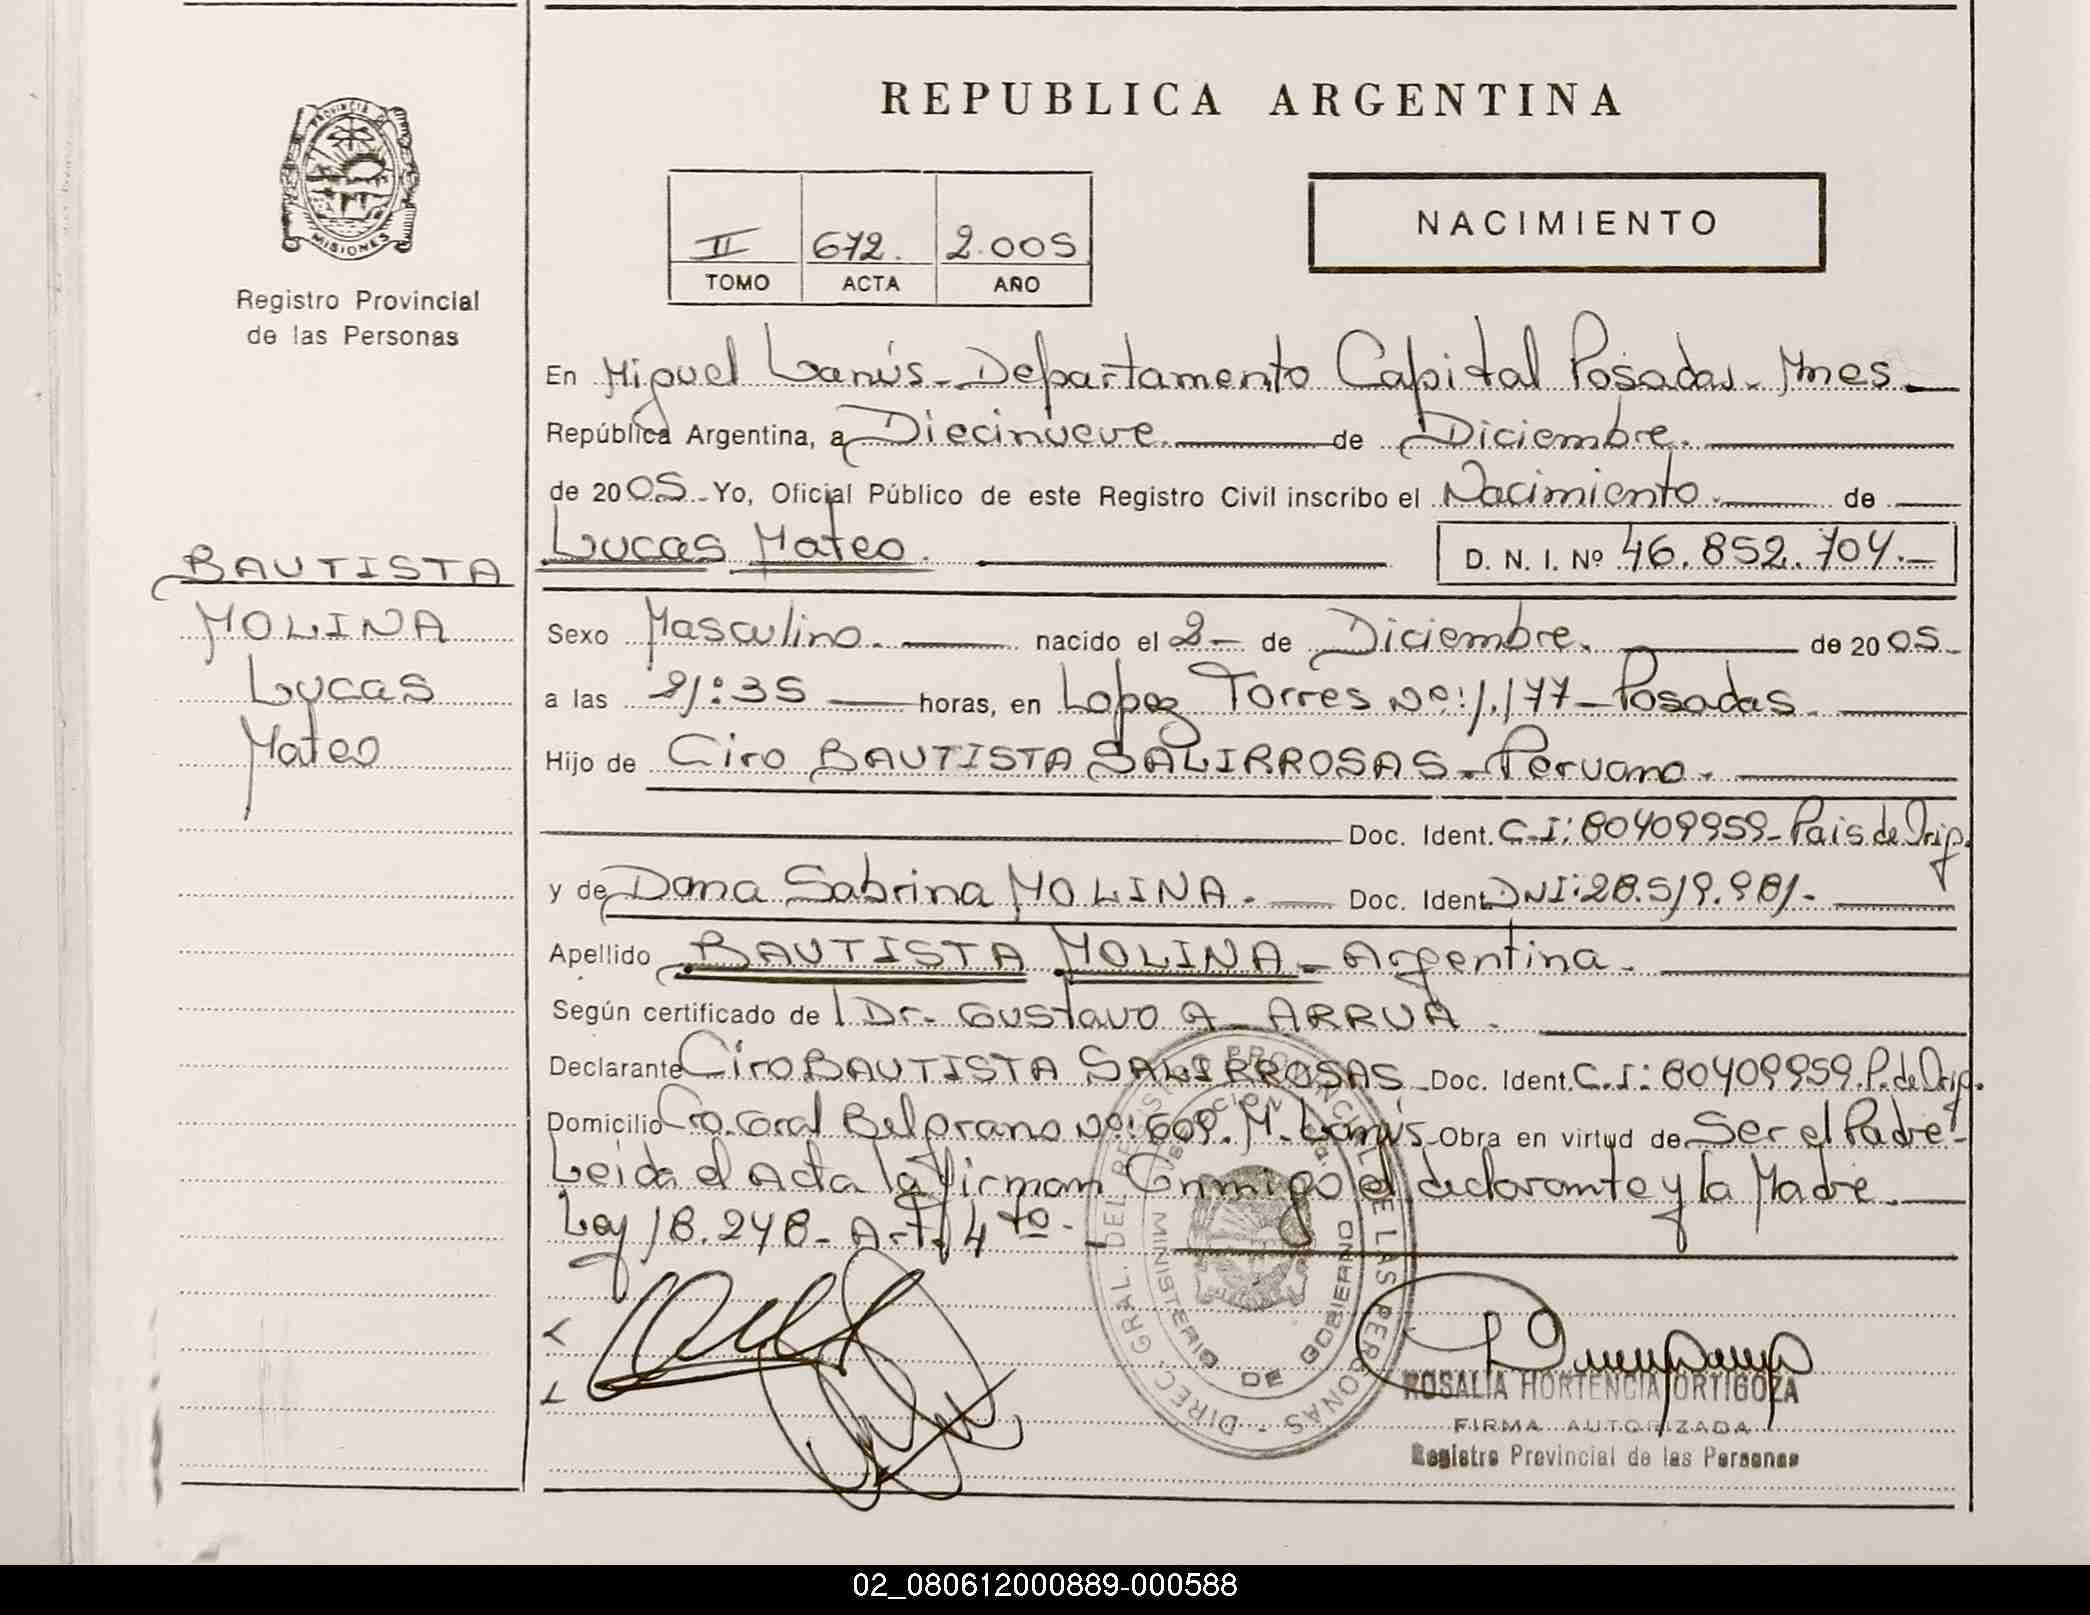 REPUBLICA ARGENTINA
PROVINCIA DE MISIONES
Registro Provincial
de las Personas
NACIMIENTO
II 672. 2.005
TOMO ACTA AÑO
En Miguel Lanús - Departamento Capital Posadas - Mnes -
República Argentina, a Diecinueve. de Diciembre.
de 2005 - Yo, Oficial Público de este Registro Civil inscribo el Nacimiento. de
Lucas Mateo. D. N. I. Nº 46.852.704.-
BAUTISTA
MOLINA
Lucas
Mateo
Sexo Masculino. nacido el 2- de Diciembre. de 2005.
a las 21:35 horas, en Lopez Torres Nº: 1.177 - Posadas.
Hijo de Ciro BAUTISTA SALIRROSAS - Peruano.
Doc. Ident. C.I: 80409959 - Pais de Orig.
y de Dana Sabrina MOLINA. Doc. Ident. DNI: 28.519.981.-
Apellido BAUTISTA MOLINA - Argentina.
Según certificado de Dr. Gustavo A. ARRUA.
Declarante Ciro BAUTISTA SALIRROSAS - Doc. Ident. C.I: 80409959. P. de Orig.
Domicilio Cro. Gral Belgrano Nº: 609. M. Lanús - Obra en virtud de Ser el Padre -
Leida el Acta la firman Conmigo el declarante y la Madre.
Ley 18.248 - Art. 4to.-
DIREC. GRAL. DEL REGISTRO PROVINCIAL DE LAS PERSONAS
MINISTERIO DE GOBIERNO
ROSALIA HORTENCIA ORTIGOZA
FIRMA AUTORIZADA
Registro Provincial de las Personas
02_080612000889-000588